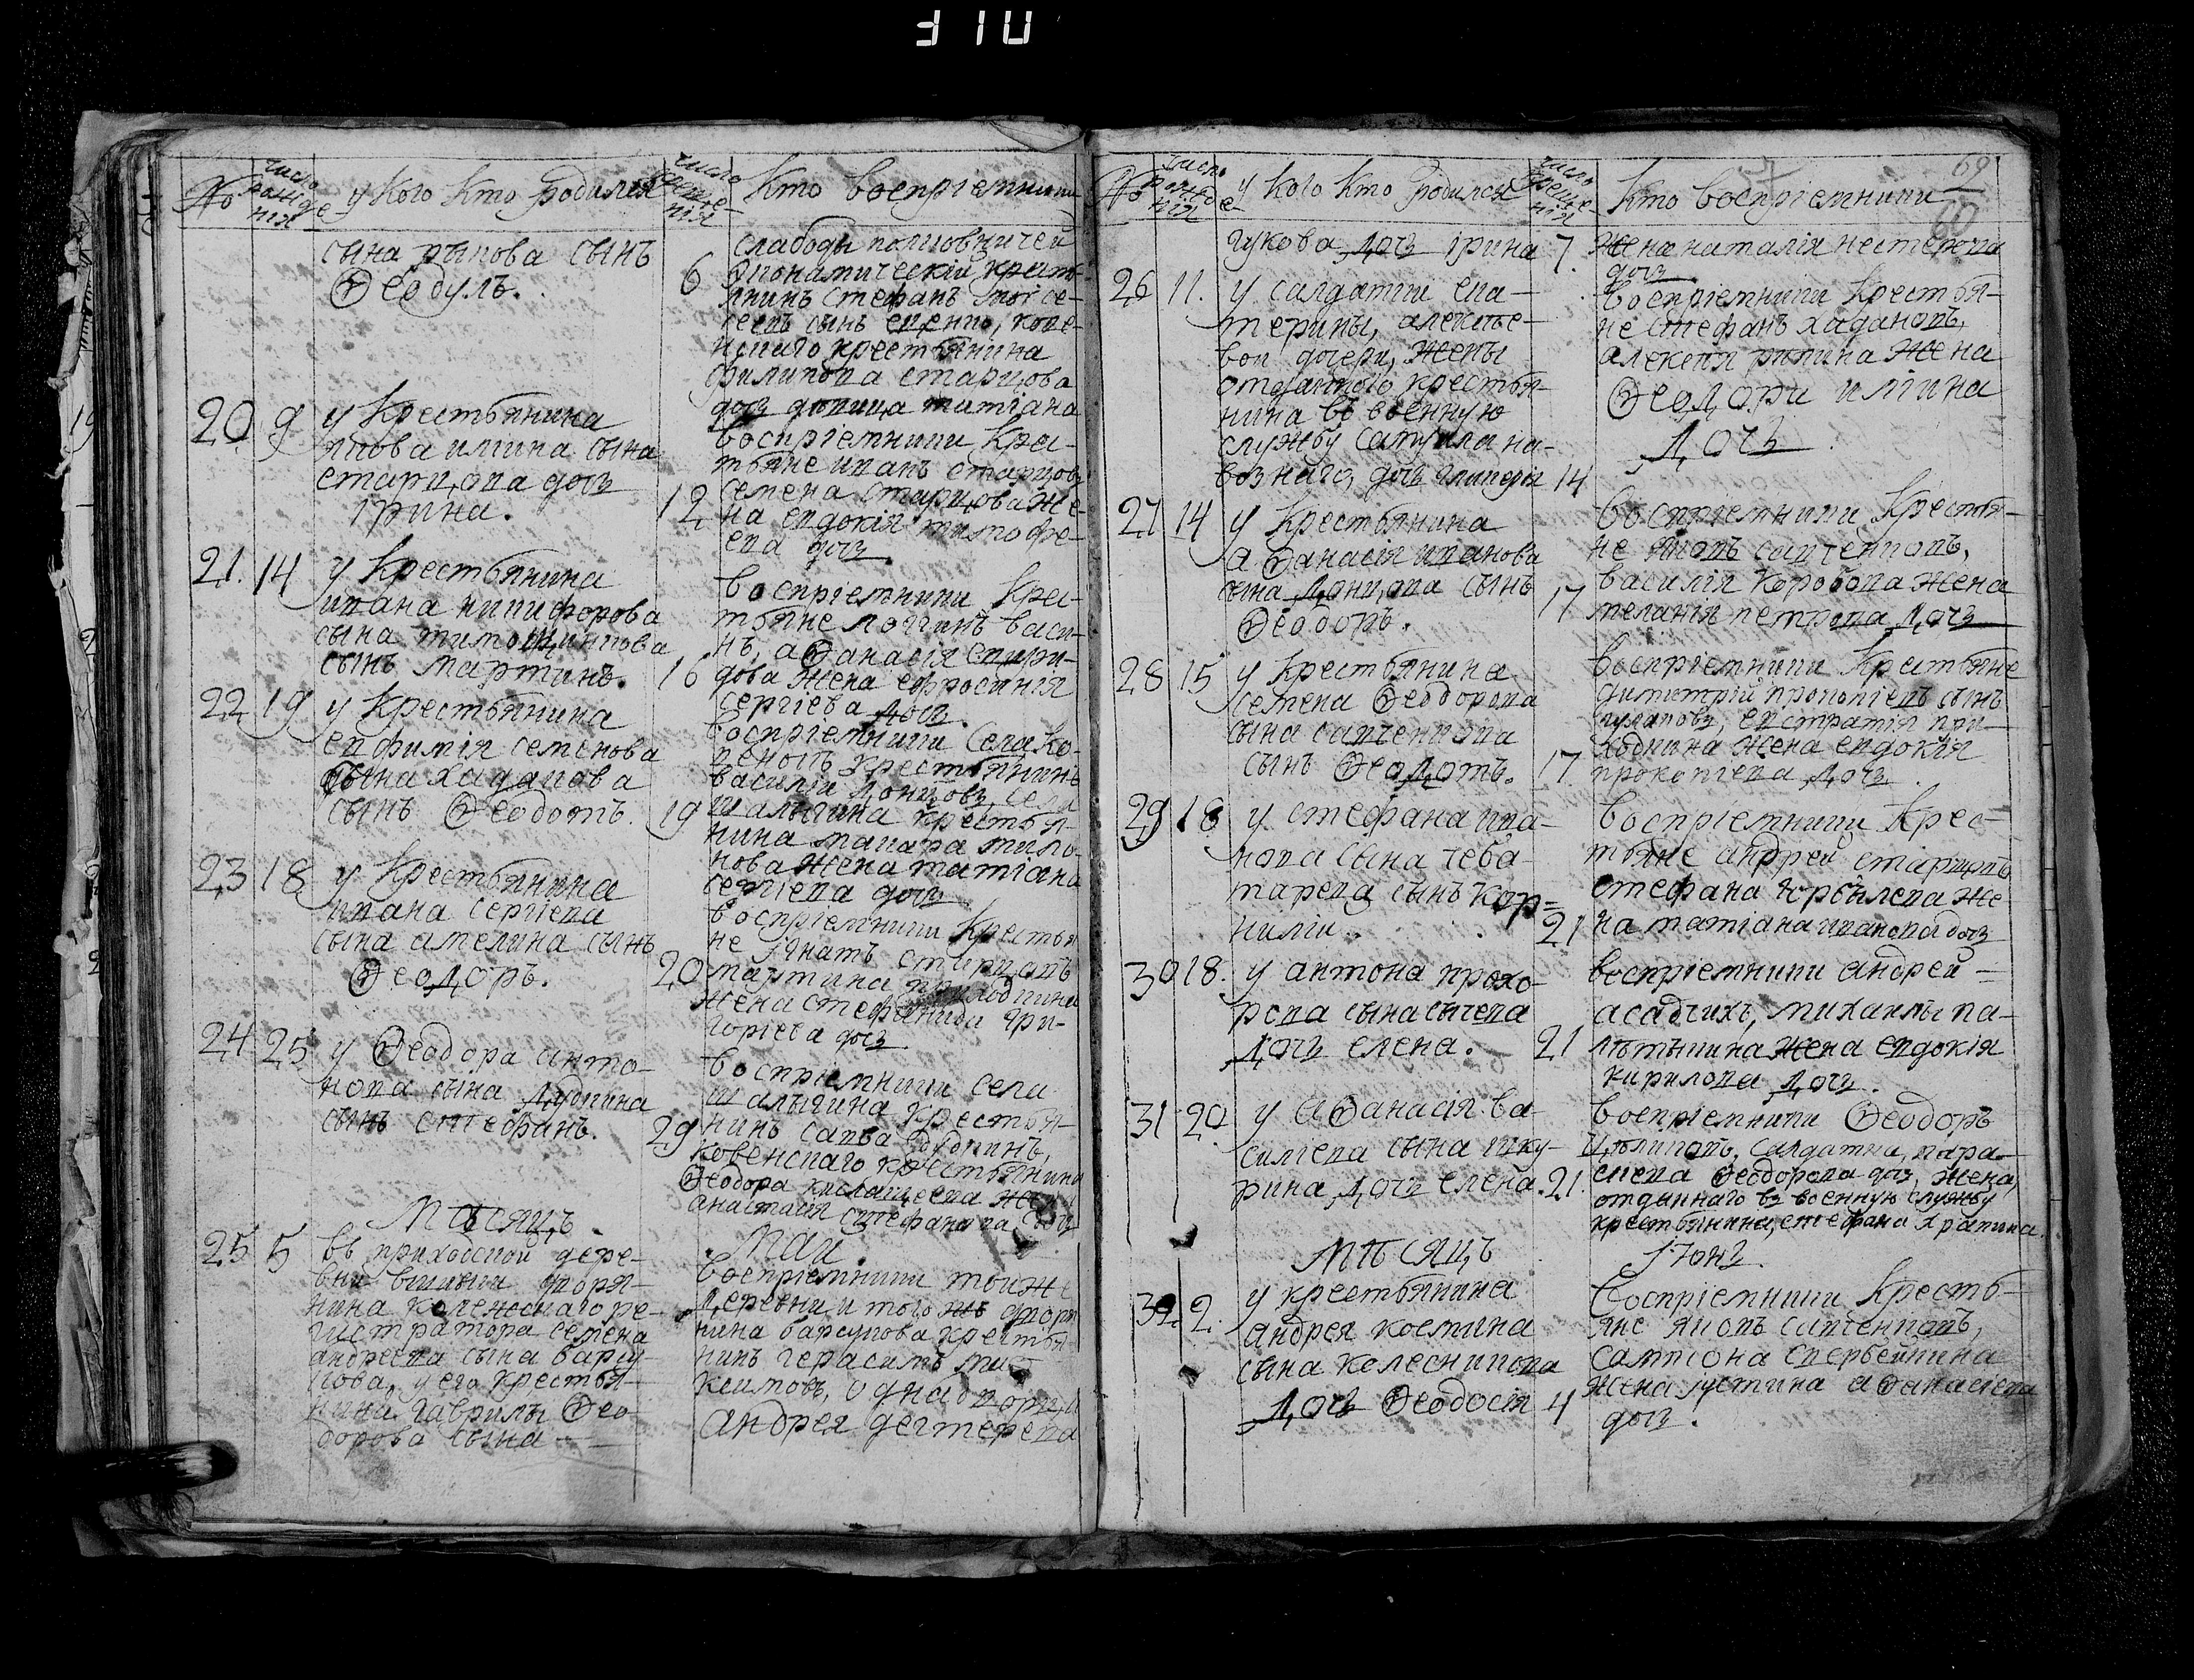 310
№
число рождения
у кого кто родился
число крещения
кто воспріемники
сына рыкова сынъ
Ѳеодулъ.
6
слабоды
экономическій крестья-
нинъ стефанъ
сынъ
крестьянина
филипова старцова
дочь девица татіана
20
9
у Крестьянина
якова илiина сына
старцова дочь
ірина.
12
воспріемники Крес-
тьяне иванъ старцовъ
семена старцова же-
на евдокія тимофе-
ева дочь
21.
14
у Крестьянина
ивана никифорова
сына тимощинкова
сынъ мартинъ.
16
воспріемники Крес-
тьяне логгинъ
аѳанасія спири-
дова жена ефросинія
сергіева дочь.
22
19
у Крестьянина
евфимія семенова
сына хаданова
сынъ Ѳеодотъ.
19
воспріемники села Ко-
крестьянинъ
василій донцовъ, села
шалыгина крестья-
нина макара мило-
нова жена татіана
сергіева дочь
23
18
у Крестьянина
ивана сергіева
сына амелина сынъ
Ѳеодоръ.
20
воспріемники Крестья-
не ігнатъ старцовъ
мартина
жена стефанида гри-
горіева дочь.
24
25
у Ѳеодора анто-
нова сына дудкина
сынъ стефанъ.
29
воспріемники села
шалыгина крестья-
нинъ сава
ковенскаго крестьянина
Ѳеодора кислащеева же
анастасія стефанова
Мѣсяцъ
Май
25
5
въ приходской дере-
вни дворя-
нина коленскаго ре-
гистратора семена
андреева сына барсу-
кова, у его крестья-
нина гаврилы Ѳео
дорова сына
воспріемники тоиже
деревни и того жъ дворя
нина барсукова крестья
нинъ герасимъ
ксимовъ, однадворца
андрея дегтерева
69
60
№
число рожде-
нія
у кого кто родился
число креще-
нія
кто воспріемники
гукова дочь ірина
7.
жена наталія нестерова
дочь
26
11.
у салдатки ека-
терины, алексѣе-
вои дочери, жены
отданного крестья-
нина въ военную
службу самуила на-
возного, дочь гликерія
14
воспріемники Крестья-
не стефанъ хадановъ,
алексея рикина жена
Ѳеодора илiина
дочь
27
14
у Крестьянина
аѳанасія иванова
сына донцова сынъ
Ѳеодоръ.
17
воспріемники Крестья-
не яковъ савченковъ,
василія коробова жена
меланія петрова дочь
28
15
у Крестьянина
семена Ѳеодорова
сына савченкова
сынъ Ѳеодотъ.
17
воспріемники Крестьяне
димитрій прокопіевъ сынъ
гулаковъ, евстратія при-
ходкина жена евдокія
прокопіева дочь.
29
18
у стефана ива-
нова сына чеба
тарева сынъ кор-
нилiи.
21
воспріемники Крес-
тьяне андрей старцовъ
стефана курвѣлева же
на татіана иванова дочь
30
18.
у антона прохо-
рова сына сычева
дочь елена.
21
воспріемники андрей
асадчихъ, михаилы па-
лѣтыкина жена евдокія
кирилова дочь.
31
20
у аѳанасія ва
силіева сына шку-
рина дочь елена.
21.
воспріемники Ѳеодоръ
цѣликовъ, салдатка, пара-
скева Ѳеодорова дочь, жена,
отданнаго въ военную службу
крестьянина, стефана храпина.
Мѣсяцъ
Іюнь
32
2.
у крестьянина
андрея космина
сына колесникова
дочь Ѳеодосія
4
Воспріемники Кресть-
яне яковъ савченковъ,
сампсона скервейкина
жена устина аѳанасіева
дочь.